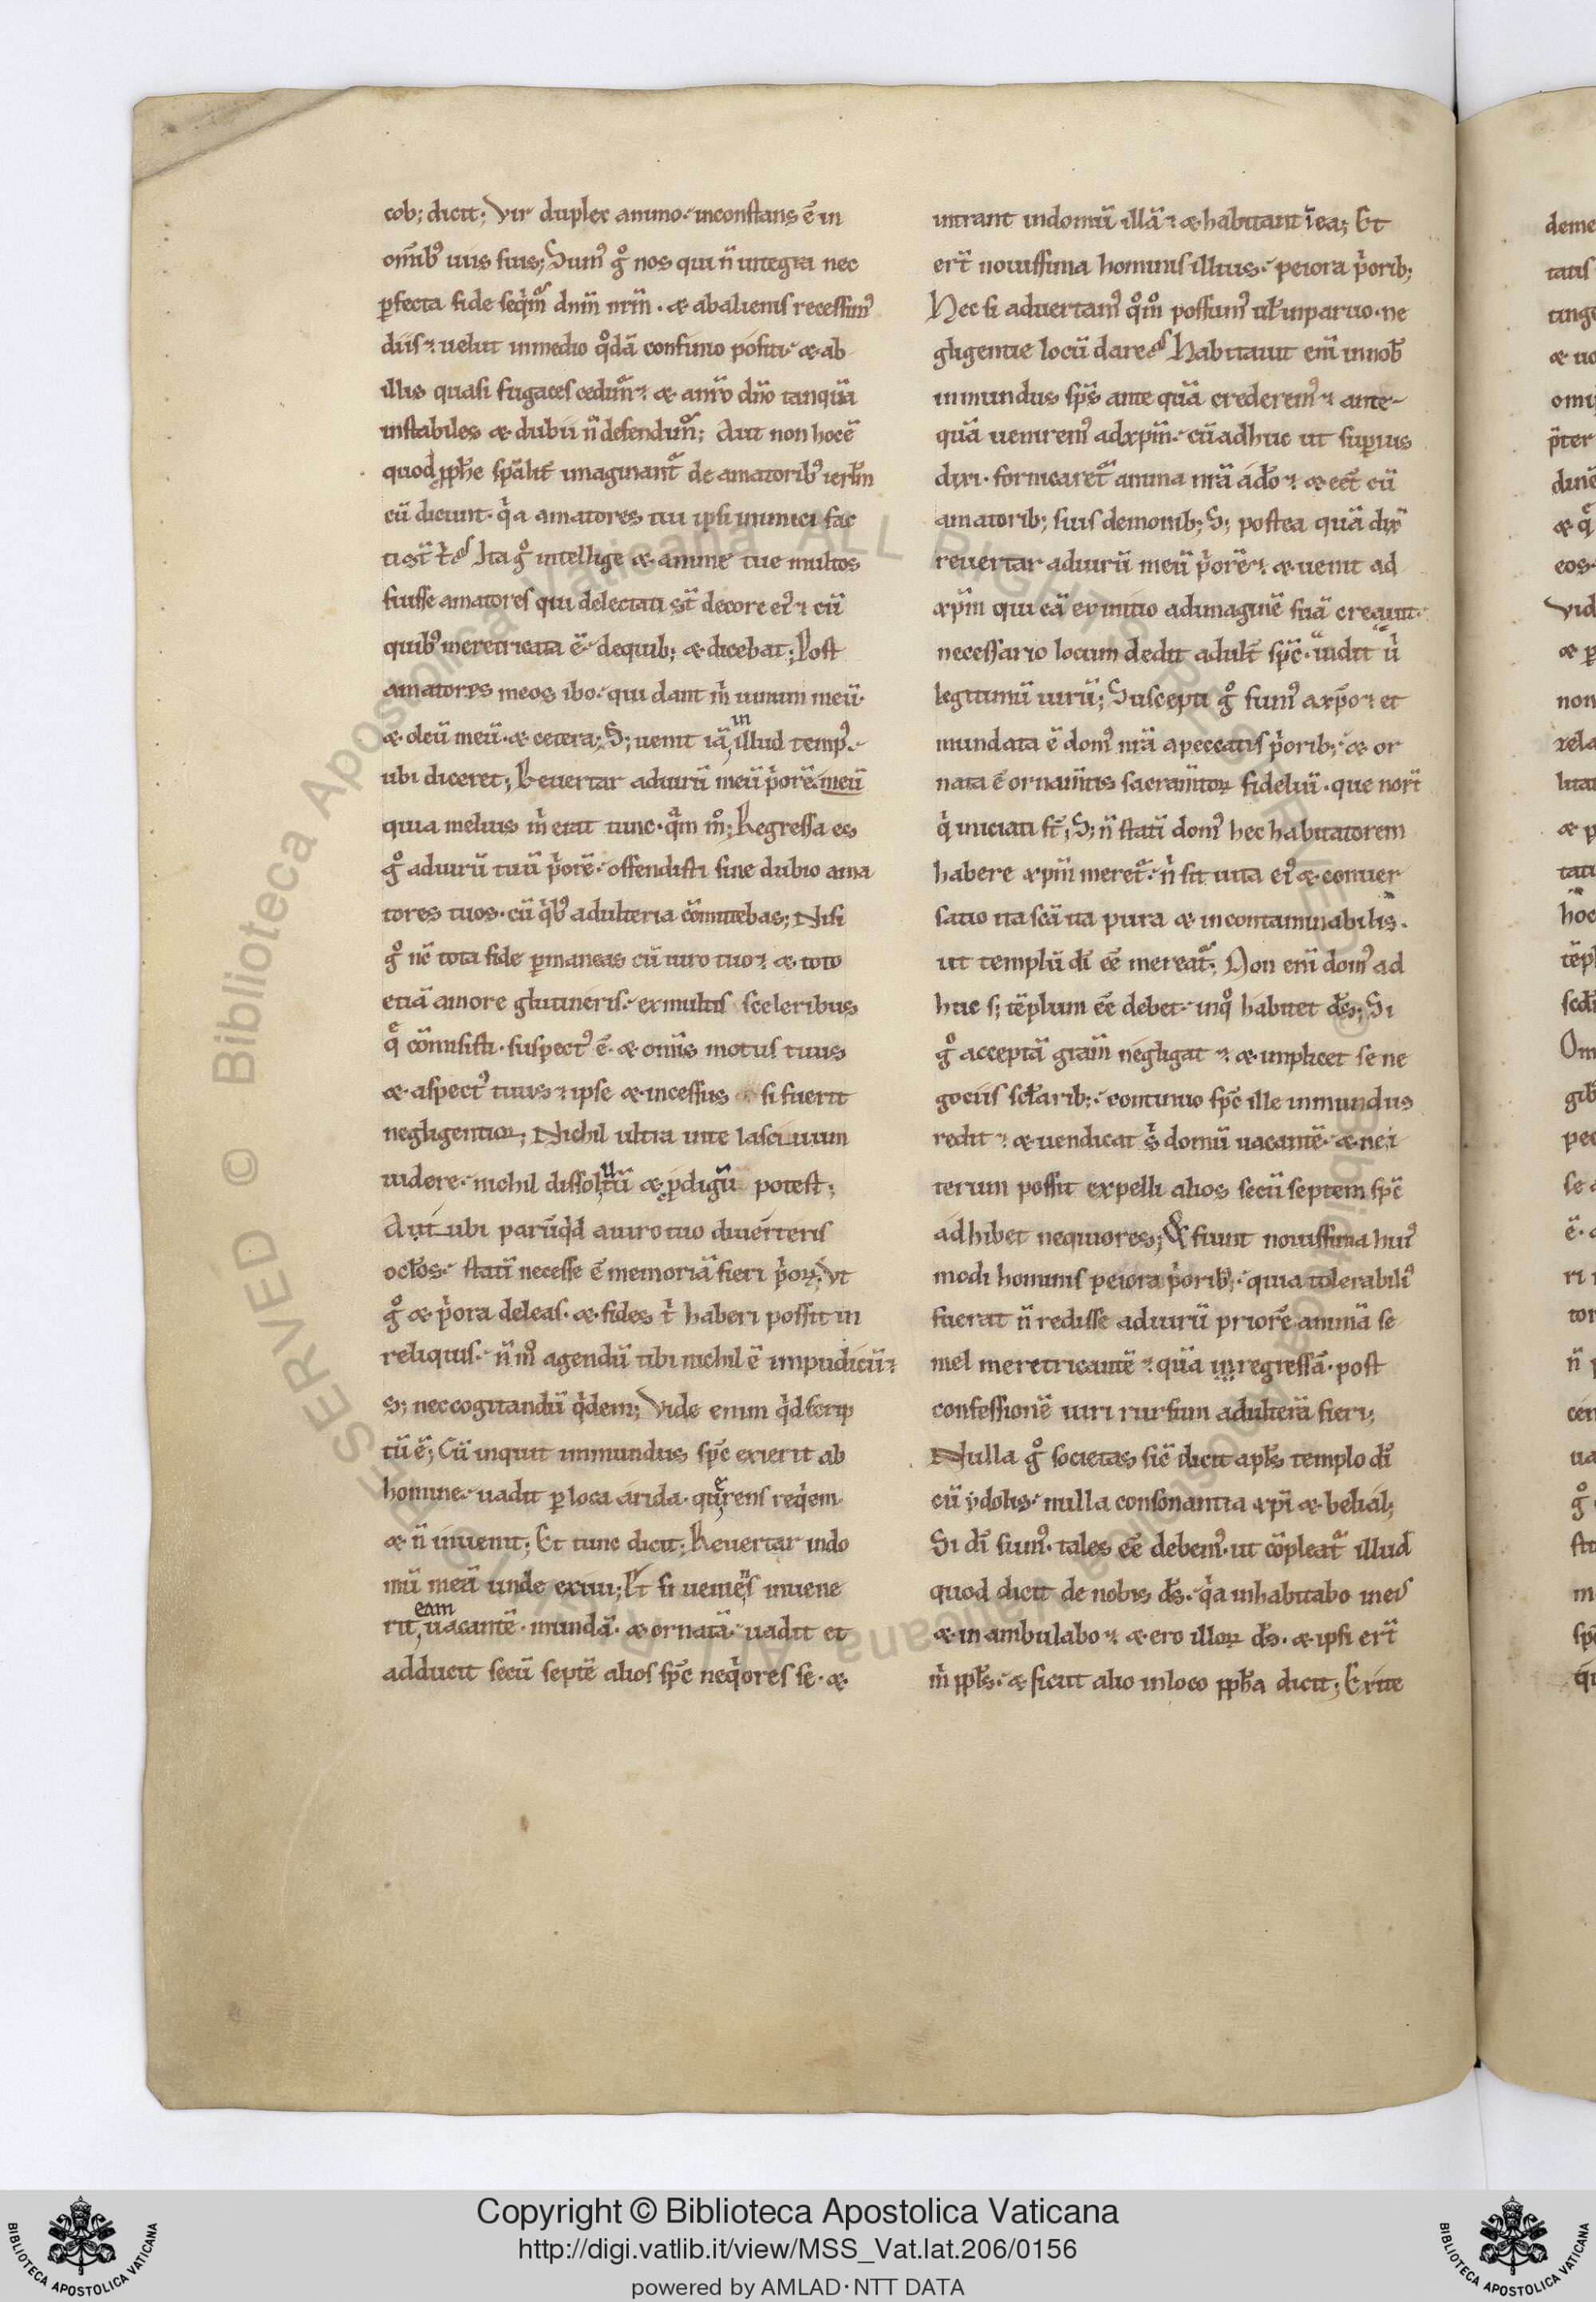 cob; dicit; Vir duplex animo inconstans ē in
om̄ibꝰ uiis suis; Sumꝰ gͦ nos qui n̄ integra nec
ꝑfecta fide seqͥm̄ dnm̄ nrm̄ · æ ab alienis recessimꝰ
diis ⁊ uelut in medio qͦdā confinio positi æ ab
illis quasi fugaces cedim̄ æ a nr̄o dn̄o tanquā
instabiles æ dubii n̄ defendim̄; Aut non hoc ē
quod ꝓphe sp̄alit̄ imaginant̄ de amatoribꝰ ierl̄m
cū dicunt · qͥa amatores tui ipsi inimici fac
ti st̄ t̄ Ita gͦ intellige æ anime tue multos
fuisse amatores qui delectati st̄ decore eiꝰ cū
quibꝰ meretricata ē dequib; æ dicebat; Post
amatores meos ibo qui dant m̄ uinum meū
æ oleū meū · æ cetera; S; uenit iā in illud tempꝰ
ubi diceret; Reuertar aduirū meū pͥorē meū
quia melius m̄ erat tunc · qᵃm mͦ; Regressa es
gͦ aduirū tuū pͥorē offendisti sine dubio ama
tores tuos · cū qͥbꝰ adulteria cōmittebas; Nisi
gͦ nc̄ tota fide ꝑmaneas cū uiro tuo æ toto
etiā amore glutineris ex multis sceleribus
q̄ cōmisisti · suspectꝰ ē · æ omīs motus tuus
æ aspectꝰ tuus ipse æ incessus si fuerit
negligentior; Nichil ultra inte lasciuum
uidere nichil dissolutū æ ꝓdigū potest;
Aut ubi parūqͥd auiro tuo diuerteris
ocl̄os statī necesse ē memoriā fieri pͥorꝝ; Vt
gͦ æ pͥora deleas · æ fides tͥ haberi possit in
reliquis n̄ mͦ agendū tibi nichil ē impudicū
S; nec cogitandū qͥdem; Vide enim qͥd scrip
tū ē; Cū inquit immundus sp̄c exierit ab
homine uadit ꝑ loca arida · querens reqͥem
æ n̄ inuenit; Et tunc dicit; Reuertar indo
mū meā unde exiui; Et si ueniēs inuene
rit eam uacantē · mundā · æ ornatā uadit et
adducit secū septē alios sp̄c neqͥores se · æ
intrant indomū illā æ habitant ī ea; Et
ert̄ nouissima hominis illius peiora pͥorib;
Hec si aduertamꝰ qͦm̄ possumꝰ ul̄ inparuo ne
gligentie locū dare Habitauit eni̅ innob̄
inmundus sp̄s ante quā crederemꝰ ante
quā uenirem̄ꝰ adxpm̄ cū adhuc ut suꝑius
dixi · fornicaret̄ anima nr̄a a do̅ æ eet̄ cū
amatorib; suis demonib; S; postea quā dix̄
reuertar aduirū meū pͥorē æ uenit ad
xpm̄ qui eā ex initio adimaginē suā creauit
necessario locum dedit adult̄ sp̄c · uidit uͥ
legitimū uirū; Suscepti gͦ sumꝰ axpo̅ et
mundata ē domꝰ nr̄a apeccatis pͥorib; æ or
nata ē ornam̄tis sacram̄torꝝ fideliū · que nort̄
qͥ iniciati st̄; S; n̄ statī domꝰ hec habitatorem
habere xpm̄ meret̄ nͥ sit uita eiꝰ æ conuer
satio ita scā ita pura æ incontaminabilis ·
ut templū di̅ ee̅ mereat̄; Non eni̅ domꝰ ad
huc s; tēplum ee̅ debet inqͦ habitet ds̄; Si
gͦ acceptā gram̄ negligat æ implicet se ne
gociis scl̄arib; continuo sp̄c ille inmundus
redit æ uendicat sͥ domū uacantē æ ne i
terum possit expelli alios secū septem sp̄c
adhibet nequiores; & fiunt nouissima huiꝰ
modi hominis peiora pͥoribꝰ quia tolerabiliꝰ
fuerat n̄ redisse aduirū priorē animā se
mel meretricantē quā inregressā post
confessionē uiri rursum adulterā fieri;
Nulla gͦ societas sic̄ dicit apl̄s templo di̅
cū ydolis nulla consonantia xpi̅ æ belial;
Si di̅ sumꝰ · tales ee̅ debemꝰ · ut cōpleat̄ illud
quod dicit de nobis ds̄ qͥa inhabitabo in eis
æ inambulabo æ ero illorꝝ ds̄ · æ ipsi ert̄
m̄ ppl̄s æ sicut alio inloco ꝓph̄a dicit; Exite